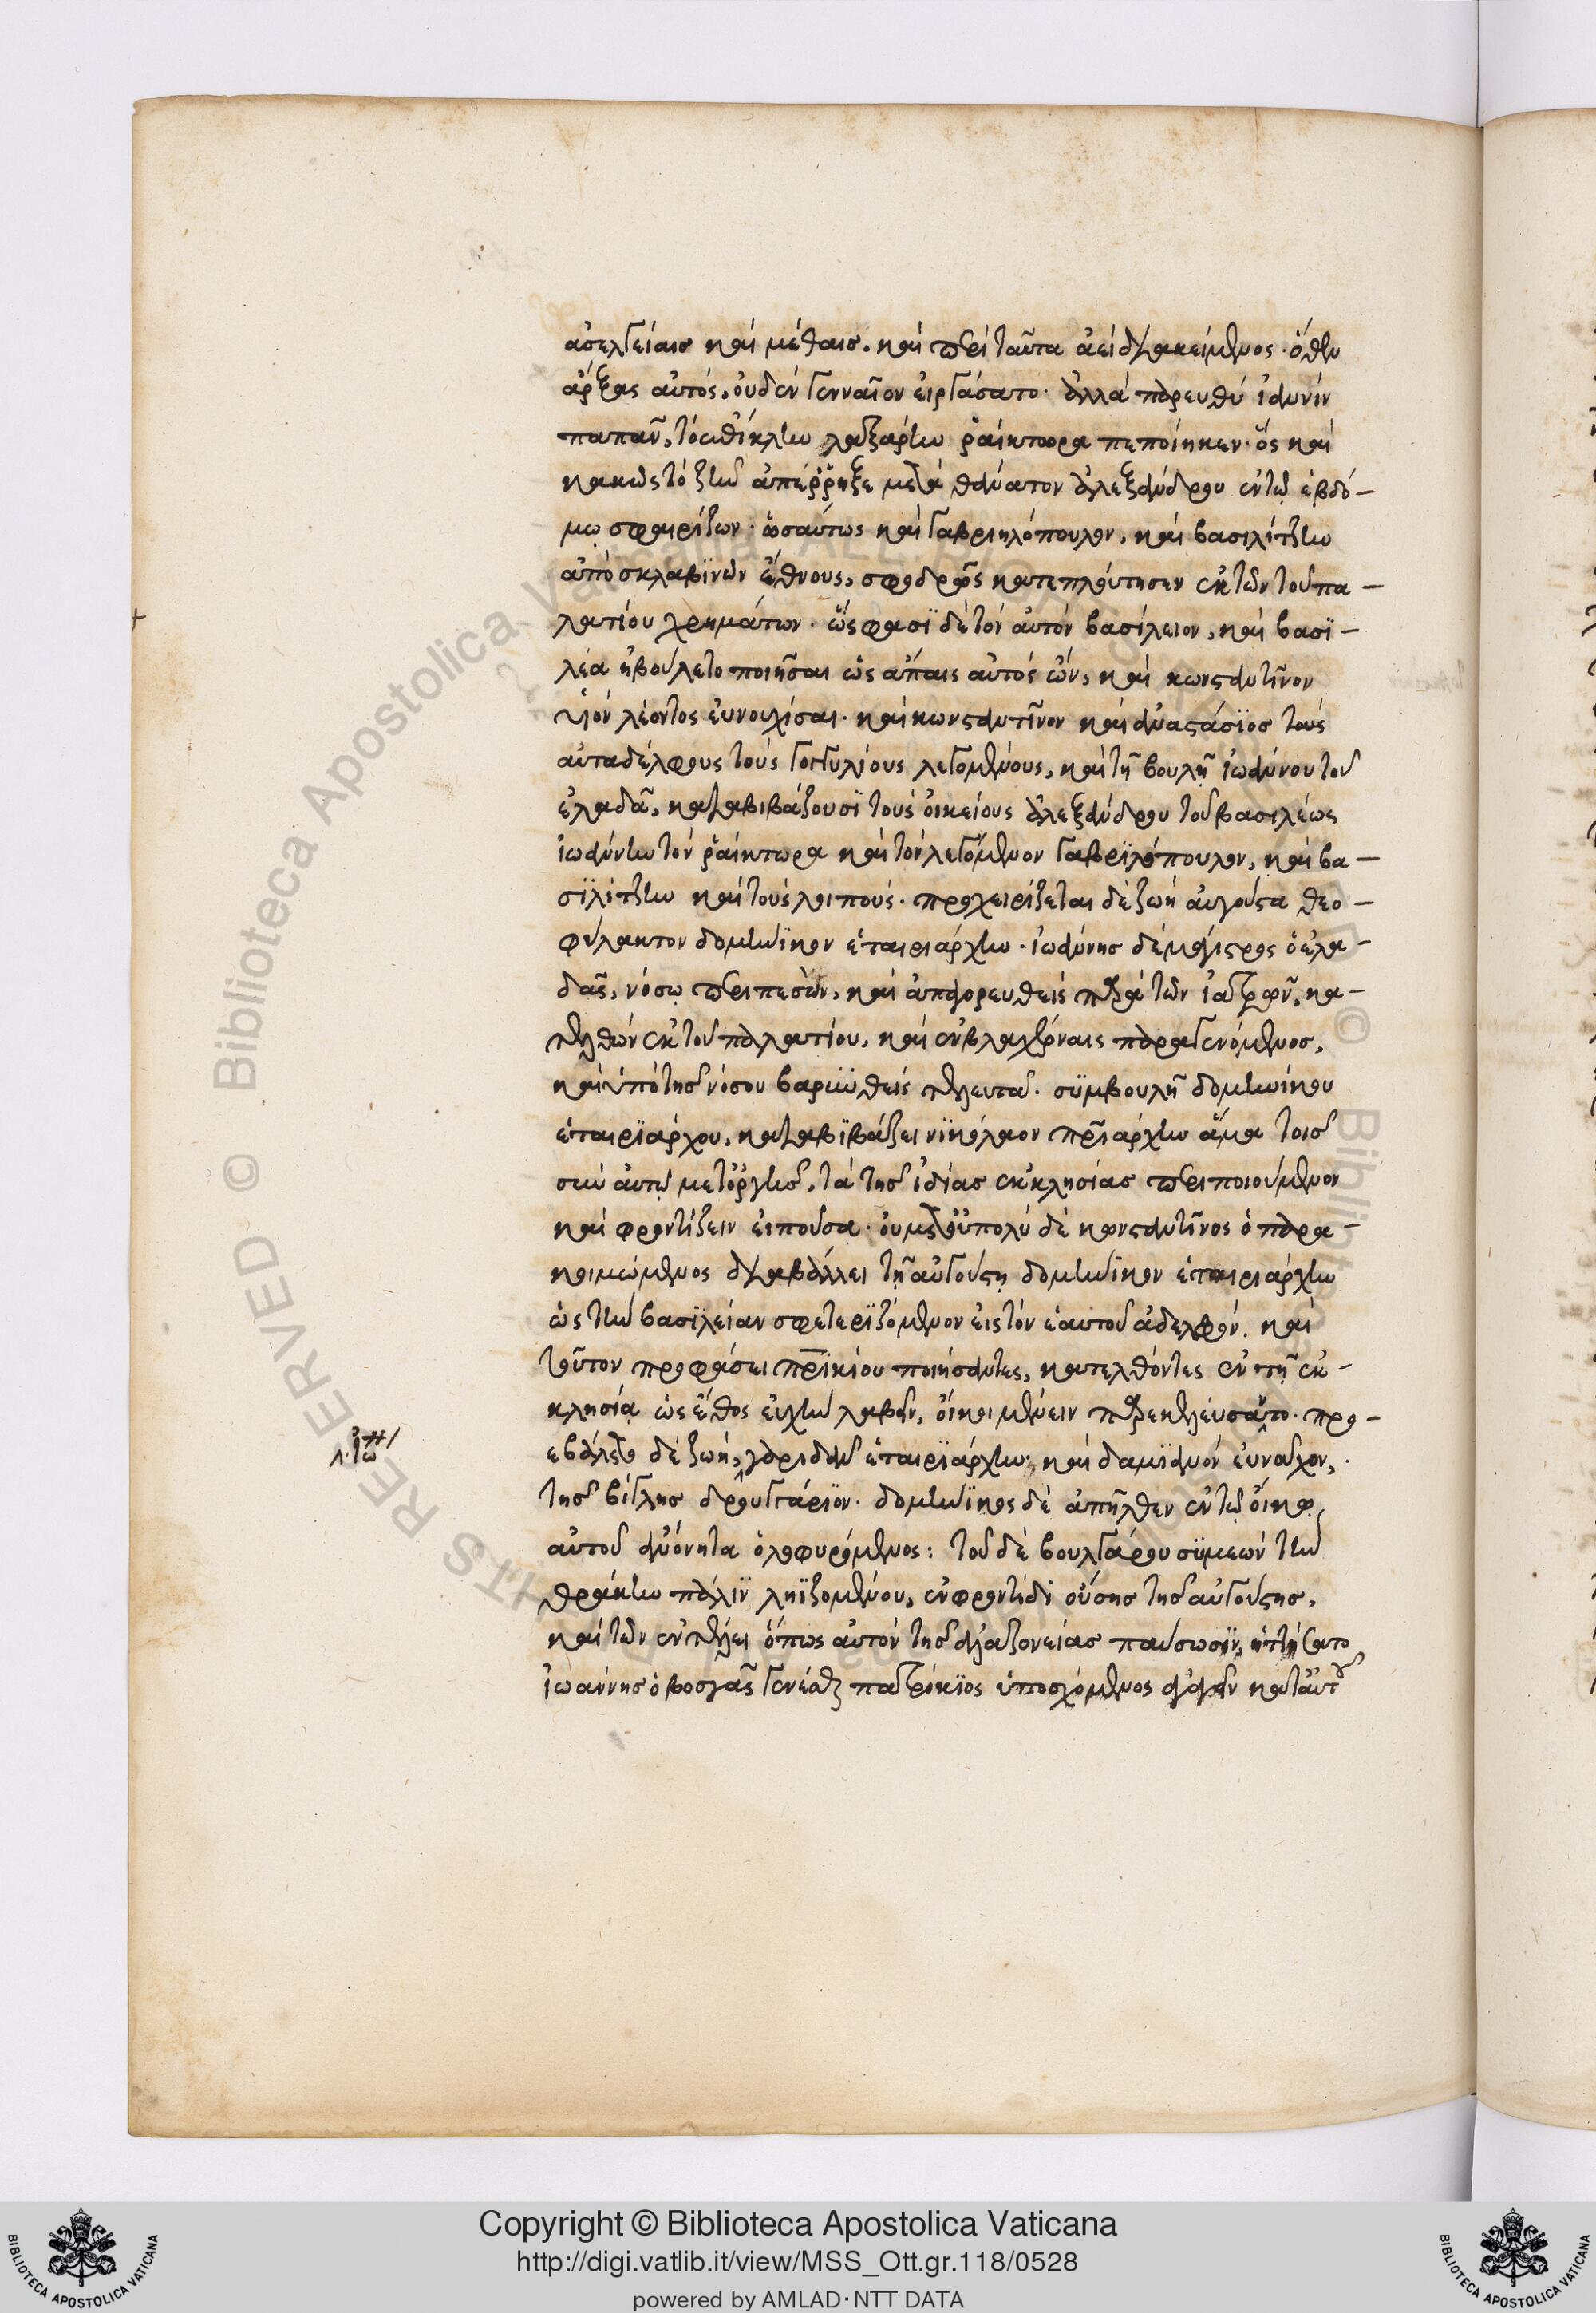 ἀσελγείαις καὶ μέθαις. καὶ περὶ ταῦτα ἀεὶ διακείμενος. ὅθεν
ἄρξας αὐτὸς, οὐδὲν γενναῖον εἰργάσατο. ἀλλὰ παρευθὺ ἰωάννην
παπᾶν, τὸ ἐπίκλην λαζάρην ῥαίκτορα πεποίηκεν. ὃς καὶ
κακῶς τὸ ζῆν ἀπέρρηξε μετὰ θάνατον ἀλεξάνδρου ἐν τῷ ἑβδό-
μῳ σφαιρίζων. ὡσαύτως καὶ γαβριηλόπουλον, καὶ βασιλίτζην
ἀπὸ σκλαβϊνῶν ἔθνους, σφοδρῶς κατεπλούτησεν ἐκ τῶν τοῦ πα-
λατίου χρημάτων. ὥς φασϊ δὲ τὸν αὐτὸν βασίλειον, καὶ βασϊ-
λέα ἠβούλετο ποιῆσαι ὡς ἄπαις αὐτὸς ὤν, καὶ κωνσταντῖνον
υἱὸν λέοντος εὐνουχίσαι. καὶ κωνσταντῖνον καὶ ἀναστάσϊος τοὺς
αὐταδέλφους τοὺς γογγυλίους λεγομένους, καὶ τῇ βουλῇ ἰωάννου τοῦ
ἐλαδᾶ, καταβιβάζουσϊ τοὺς οἰκείους ἀλεξάνδρου τοῦ βασιλέως
ἰωάννην τὸν ῥαίκτωρα καὶ τὸν λεγόμενον γαβρϊλόπουλον, καὶ βα-
σϊλίτζην καὶ τοὺς λοιποὺς. προχειρίζεται δὲ ζωὴ αὐγούστα θεο-
φύλακτον δομηνϊκον ἑταιριάρχην. ἰωάννης δὲ μάγιστρος ὁ ἐλα-
δᾶς, νόσῳ περιπεσὼν, καὶ ἀπαγορευθεὶς παρὰ τῶν ἰατρῶν, κα-
τελθὼν ἐκ τοῦ παλατίου, καὶ ἐν βλαχέρναις παραγενόμενος,
καὶ ὑπὸ τῆς νόσου βαρυνθεὶς τελευτᾶ. συμβουλῇ δομηνίκου
ἑταιρϊάρχου, καταβϊβάζει νϊκόλαον πριάρχην ἅμα τοῖς
σὺν αὐτῷ μετ' ὀργῆς, τὰ τῆς ἰδίας ἐκκλησίας περιποιούμενον
καὶ φροντίζειν εἰποῦσα. οὐ μετὰ πολὺ δὲ κωνσταντῖνος ὁ παρα-
κοιμώμενος διαβάλλει τῇ αὐγούστῃ δομηνϊκον ἑταιριάρχην
ὡς τὴν βασϊλείαν σφετερϊζόμενον εἰς τὸν ἑαυτοῦ ἀδελφόν. καὶ
τοῦτον προφάσει πρϊκίου ποιήσαντες, κατελθόντες ἐν τῇ ἐκ-
κλησίᾳ ὡς ἔθος εὐχὴν λαβεῖν, οἴκοι μένειν παρεκελεύσαντο. προ-
εβάλετο δὲ ζωὴ, γαριδᾶν ἑταιρϊάρχην, καὶ δαμϊανὸν εὐνοῦχον,
τῆς βίγλης δρουγγάρϊον. δομηνϊκος δὲ ἀπῆλθεν ἐν τῷ οἴκῳ
αὐτοῦ ἀνόνητα ὀλοφυρόμενος: τοῦ δὲ βουλγάρου σϋμεὼν τὴν
θράκην πάλϊν ληϊζομένου, ἐν φροντίδϊ οὔσης τῆς αὐγούστης,
καὶ τῶν ἐν τέλει ὅπως αὐτὸν τῆς ἀλαζονείας παύσωσϊν, ᾐτήσατο
ἰωάννης ὁ βογᾶς γενέσθαι πατρίκϊος ὑποσχόμενος ἀγαγεῖν κατ' αὐτοῦ